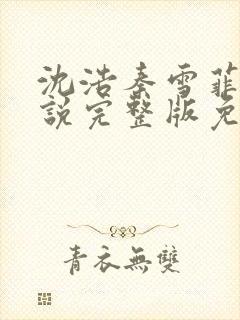 沈浩秦雪菲
說完整版免
青衣無雙